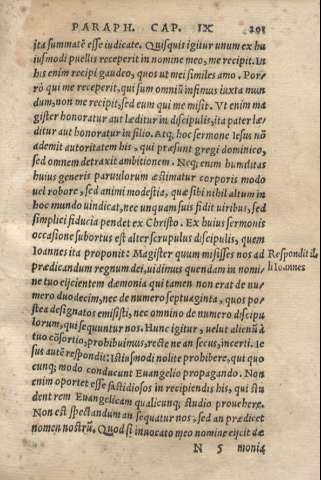 PARAPH. CAP. IX 201
ita summatē esse iudicate. Quisquis igitur unum ex hu
iusmodi puellis receperit in nomine meo, me recipit. In
his enim recipi gaudeo, quos ut mei similes amo. Por-
rò qui me receperit, qui sum omniū infimus iuxta mun
dum, non me recipit, sed eum qui me misit. Vt enim ma
gister honoratur aut læditur in discipulis, ita pater læ-
ditur aut honoratur in filio. Atq; hoc sermone Iesus nō
ademit autoritatem his, qui præsunt gregi dominico,
sed omnem detraxit ambitionem. Neq; enim humilitas
huius generis paruulorum æstimatur corporis modo
uel robore, sed animi modestia, quæ sibi nihil altum in
hoc mundo uindicat, nec unquam suis fidit uiribus, sed
simplici fiducia pendet ex Christo. Ex huius sermonis
occasione subortus est alter scrupulus discipulis, quem
Ioannes ita proponit: Magister quum misisses nos ad
prædicandum regnum dei, uidimus quendam in nomi-
ne tuo eijcientem dæmonia qui tamen non erat de nu-
mero duodecim, nec de numero septuaginta, quos po-
stea designatos emisisti, nec omnino de numero discipu
lorum, qui sequuntur nos. Hunc igitur, uelut alienū à
tuo cōsortio, prohibuimus, recte ne an secus, incerti. Ie
sus autē respondit: Istiusmodi nolite prohibere, qui quo
cunq; modo conducunt Euangelio propagando. Non
enim oportet esse fastidiosos in recipiendis his, qui stu
dent rem Euangelicam qualicunq; studio prouehere.
Non est spectandum an sequatur nos, sed an prædicet
nomen nostrū. Quod si inuocato meo nomine eijcit dæ
N 5 monia
Respondit il
li Ioannes